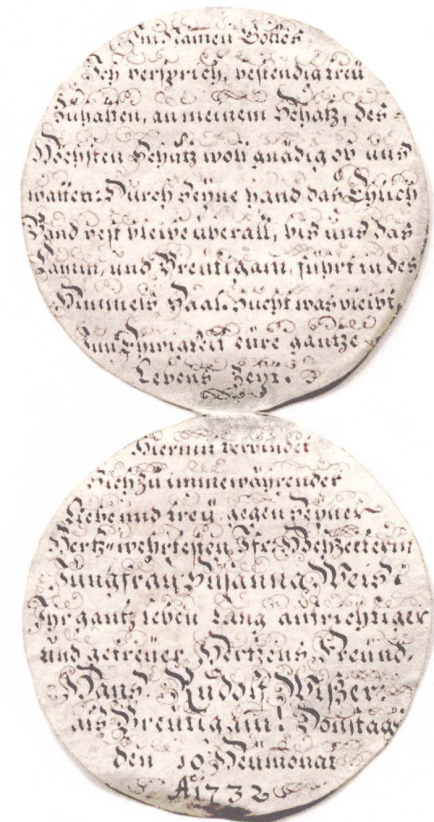 Im Namen Gottes
Ich versprich, bestendig treü
Zuhalten, an meinem Schatz, des-
Höchsten Schutz woll gnädig ob uns
walten: Durch seyne hand das Ehlich
Band vest bleibe uberall, bis uns das
Lamm, und Breütigam, führt in des
Himmels Saal. Sucht was bleibt,
Zun Eywigkeit eüre gantze
Lebens Zeyt.
Hiermit verbindet
Sich zu immewährender
Liebe und treü gegen Seyner
Hertz-wehrtesten Jfr: Hochzeiterin
Jungfrau Susanna Weis:
Ihr gantz leben Lang aufrichtiger
und getreüer Hertzens Freünd.
Hans Rudolf Wißer:
als Breütigam! Donstag
den 10 Heümonat
A: 1732